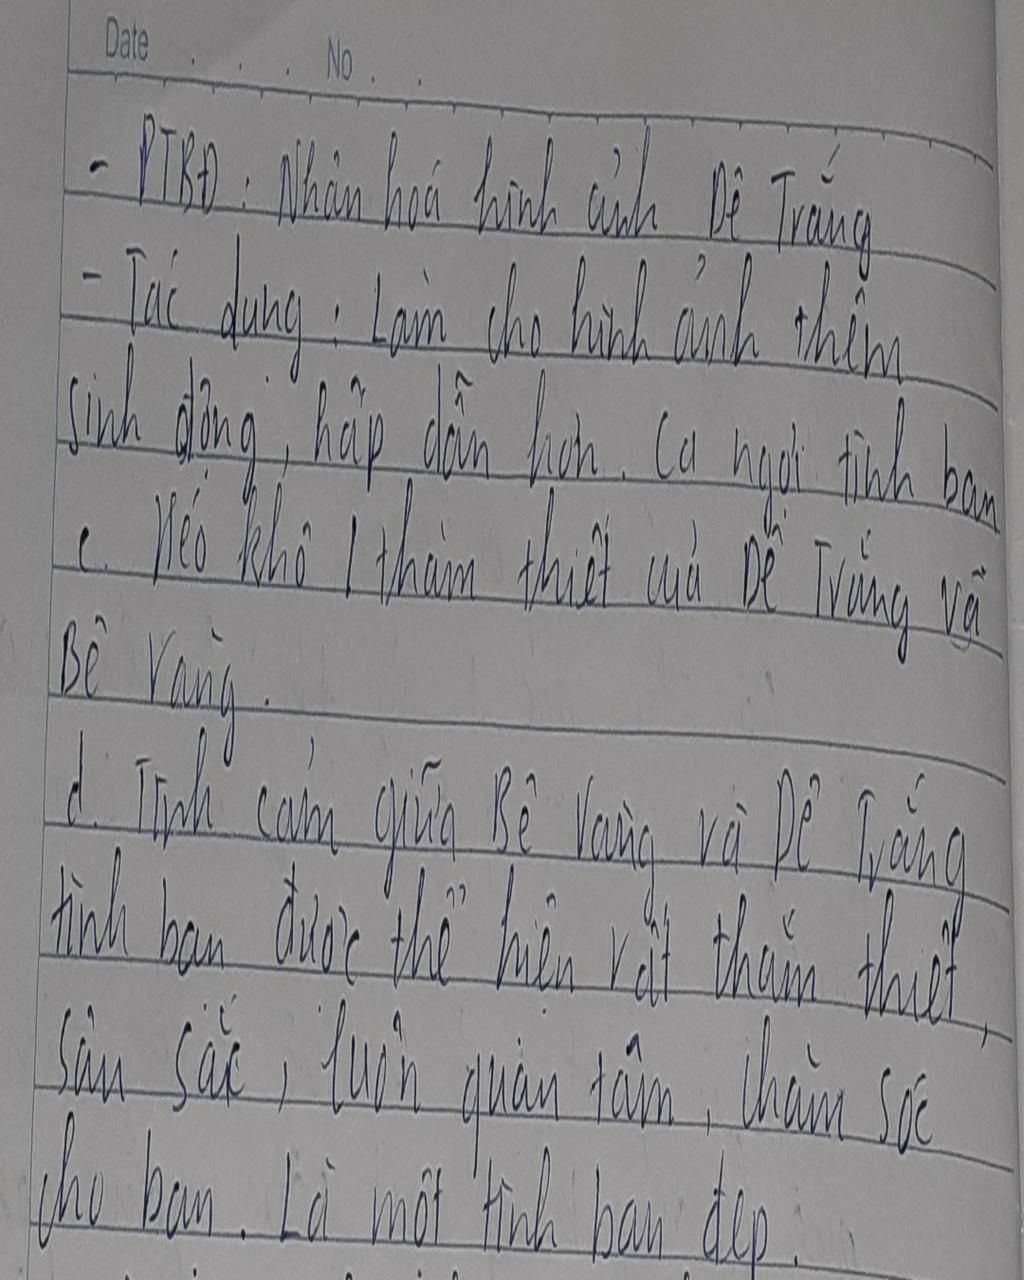 Date . . . No . .
- PTBĐ: Nhân hoá hình ảnh Dê Trắng
- Tác dụng: Làm cho hình ảnh thêm
sinh động, hấp dẫn hơn. Ca ngợi tình bạn
c. Héo khô / thắm thiết của Dê Trắng và
Bê Vàng.
d. Tình cảm giữa Bê Vàng và Dê Trắng
tình bạn được thể hiện rất thắm thiết,
sâu sắc, luôn quan tâm, chăm sóc
cho bạn. Là một tình bạn đẹp.